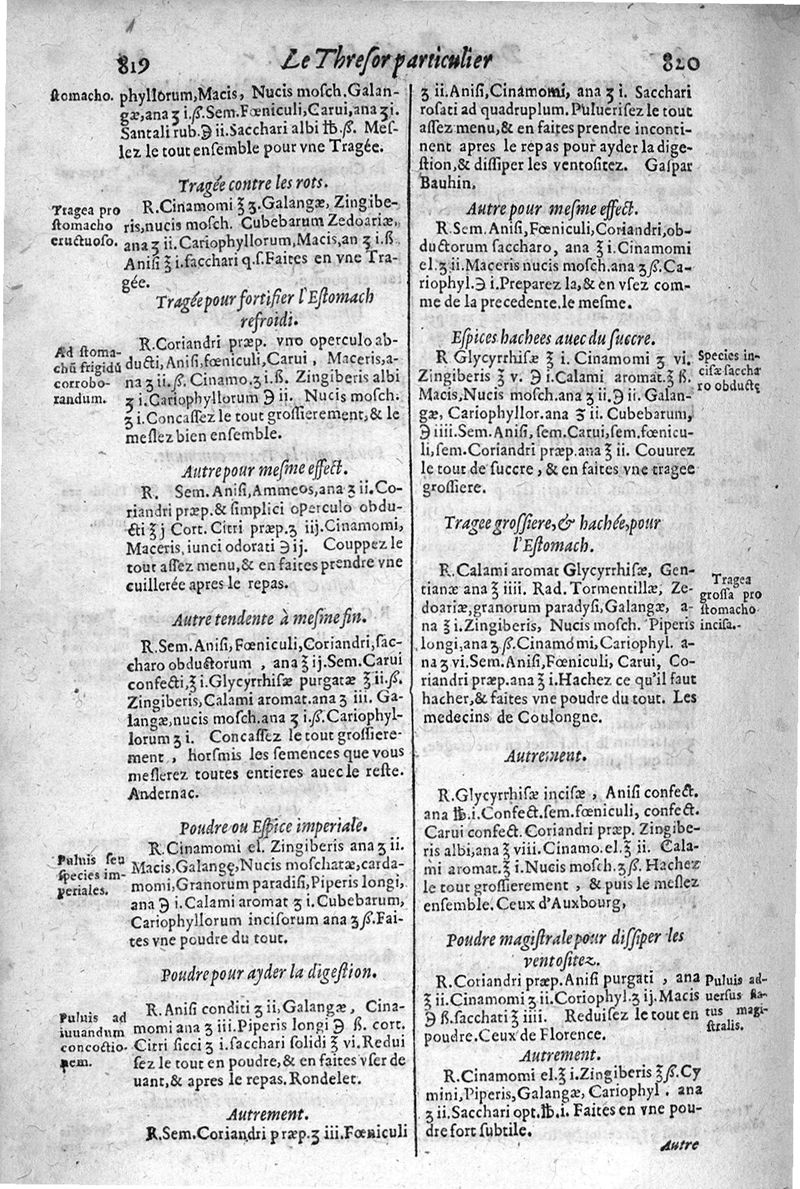 819
Le Thresor particulier
820
stomacho.
phyllorum, Macis, Nucis mosch. Galan-
gæ, ana ʒ i.ß. Sem. Fœniculi, Carui, ana ʒ i.
Santali rub. ℈ ii. Sacchari albi ℔.ß. Mes-
lez le tout ensemble pour vne Tragée.
Tragée contre les rots.
Tragea pro
stomacho
eructuoso.
R. Cinamomi ℥ ʒ. Galangæ, Zingibe-
ris, nucis mosch. Cubebarum Zedoariæ,
ana ʒ ii. Cariophyllorum, Macis, an ʒ i.ß
Anisi ℥ i. sacchari q.s. Faites en vne Tra-
gée.
Tragée pour fortifier l'Estomach
refroidi.
Ad stoma-
chū frigidū
corrobo-
randum.
R. Coriandri præp. vno operculo ab-
ducti, Anisi, fœniculi, Carui, Maceris, a-
na ʒ ii.ß. Cinamo. ʒ i.ß. Zingiberis albi
ʒ i. Cariophyllorum ℈ ii. Nucis mosch.
ʒ i. Concassez le tout grossierement, & le
meslez bien ensemble.
Autre pour mesme effect.
R. Sem. Anisi, Ammeos, ana ʒ ii. Co-
riandri præp. & simplici operculo obdu-
cti ℥ j Cort. Citri præp. ʒ iij. Cinamomi,
Maceris, iunci odorati ℈ ij. Couppez le
tout assez menu, & en faites prendre vne
cuillerée apres le repas.
Autre tendente à mesme fin.
R. Sem. Anisi, Fœniculi, Coriandri, sac-
charo obductorum, ana ℥ ij. Sem. Carui
confecti, ℥ i. Glycyrrhisæ purgatæ ℥ ii.ß.
Zingiberis, Calami aromat. ana ʒ iii. Ga-
langæ, nucis mosch. ana ʒ i.ß. Cariophyl-
lorum ʒ i. Concassez le tout grossiere-
ment, horsmis les semences que vous
meslerez toutes entieres auec le reste.
Andernac.
Poudre ou Espice imperiale.
Puluis seu
species im-
periales.
R. Cinamomi el. Zingiberis ana ʒ ii.
Macis, Galangę, Nucis moscharæ, carda-
momi, Granorum paradisi, Piperis longi,
ana ℈ i. Calami aromat ʒ i. Cubebarum,
Cariophyllorum incisorum ana ʒ ß. Fai-
tes vne poudre du tout.
Poudre pour ayder la digestion.
Puluis ad
iuuandum
concoctio-
nem.
R. Anisi conditi ʒ ii, Galangæ, Cina-
momi ana ʒ iii. Piperis longi ℈ ß. cort.
Citri sicci ʒ i. sacchari solidi ℥ vi. Redui
sez le tout en poudre, & en faites vser de
uant, & apres le repas. Rondelet.
Autrement.
R. Sem. Coriandri præp. ʒ iii. Fœniculi
ʒ ii. Anisi, Cinamomi, ana ʒ i. Sacchari
rosati ad quadruplum. Puluerisez le tout
assez menu, & en faites prendre inconti-
nent apres le repas pour ayder la dige-
stion, & dissiper les ventositez. Gaspar
Bauhin,
Autre pour mesme effect.
R. Sem. Anisi, Fœniculi, Coriandri, ob-
ductorum saccharo, ana ℥ i. Cinamomi
el. ʒ ii. Maceris nucis mosch. ana ʒ ß. Ca-
riophyl. ℈ i. Preparez la, & en vsez com-
me de la precedente. le mesme.
Espices hachees auec du succre.
R Glycyrrhisæ ℥ i. Cinamomi ʒ vi.
Zingiberis ℥ v. ℈ i. Calami aromat. ℥ ß.
Macis, Nucis mosch. ana ʒ ii. ℈ ii. Galan-
gæ, Cariophyllor. ana ʒ ii. Cubebarum,
℈ iiii. Sem. Anisi, sem. Carui, sem. fœnicu-
li, sem. Coriandri præp. ana ℥ ii. Couurez
le tout de succre, & en faites vne tragee
grossiere.
Species in-
cisæ sacchа
ro obductę
Tragee grossiere, & hachée, pour
l'Estomach.
R. Calami aromat Glycyrrhisæ, Gen-
tianæ ana ℥ iiii. Rad. Tormentillæ, Ze-
doariæ, granorum paradysi, Galangæ, a-
na ℥ i. Zingiberis, Nucis mosch. Piperis
longi, ana ʒ ß. Cinamomi, Cariophyl. a-
na ʒ vi. Sem. Anisi, Fœniculi, Carui, Co-
riandri præp. ana ℥ i. Hachez ce qu'il faut
hacher, & faites vne poudre du tout. Les
medecins de Coulongne.
Tragea
grossa pro
stomacho
incisa.
Autrement.
R. Glycyrrhisæ incisæ, Anisi confect.
ana ℔. i. Confect. sem. fœniculi, confect.
Carui confect. Coriandri præp. Zingibe-
ris albi, ana ℥ viii. Cinamo. el. ℥ ii. Cala-
mi aromat. ℥ i. Nucis mosch. ʒ ß. Hachez
le tout grossierement, & puis le meslez
ensemble. Ceux d'Auxbourg,
Poudre magistrale pour dissiper les
ventositez.
R. Coriandri præp. Anisi purgati, ana
℥ ii. Cinamomi ʒ ii. Coriophyl. ʒ ij. Macis
℈ ß. sacchati ℥ iiii. Reduisez le tout en
poudre. Ceux de Florence.
Puluis ad-
uersus fla-
tus magi-
stralis.
Autrement.
R. Cinamomi el. ℥ i. Zingiberis ℥ ß. Cy
mini, Piperis, Galangæ, Cariophyl. ana
ʒ ii. Sacchari opt. ℔. i. Faites en vne pou-
dre fort subtile.
Autre